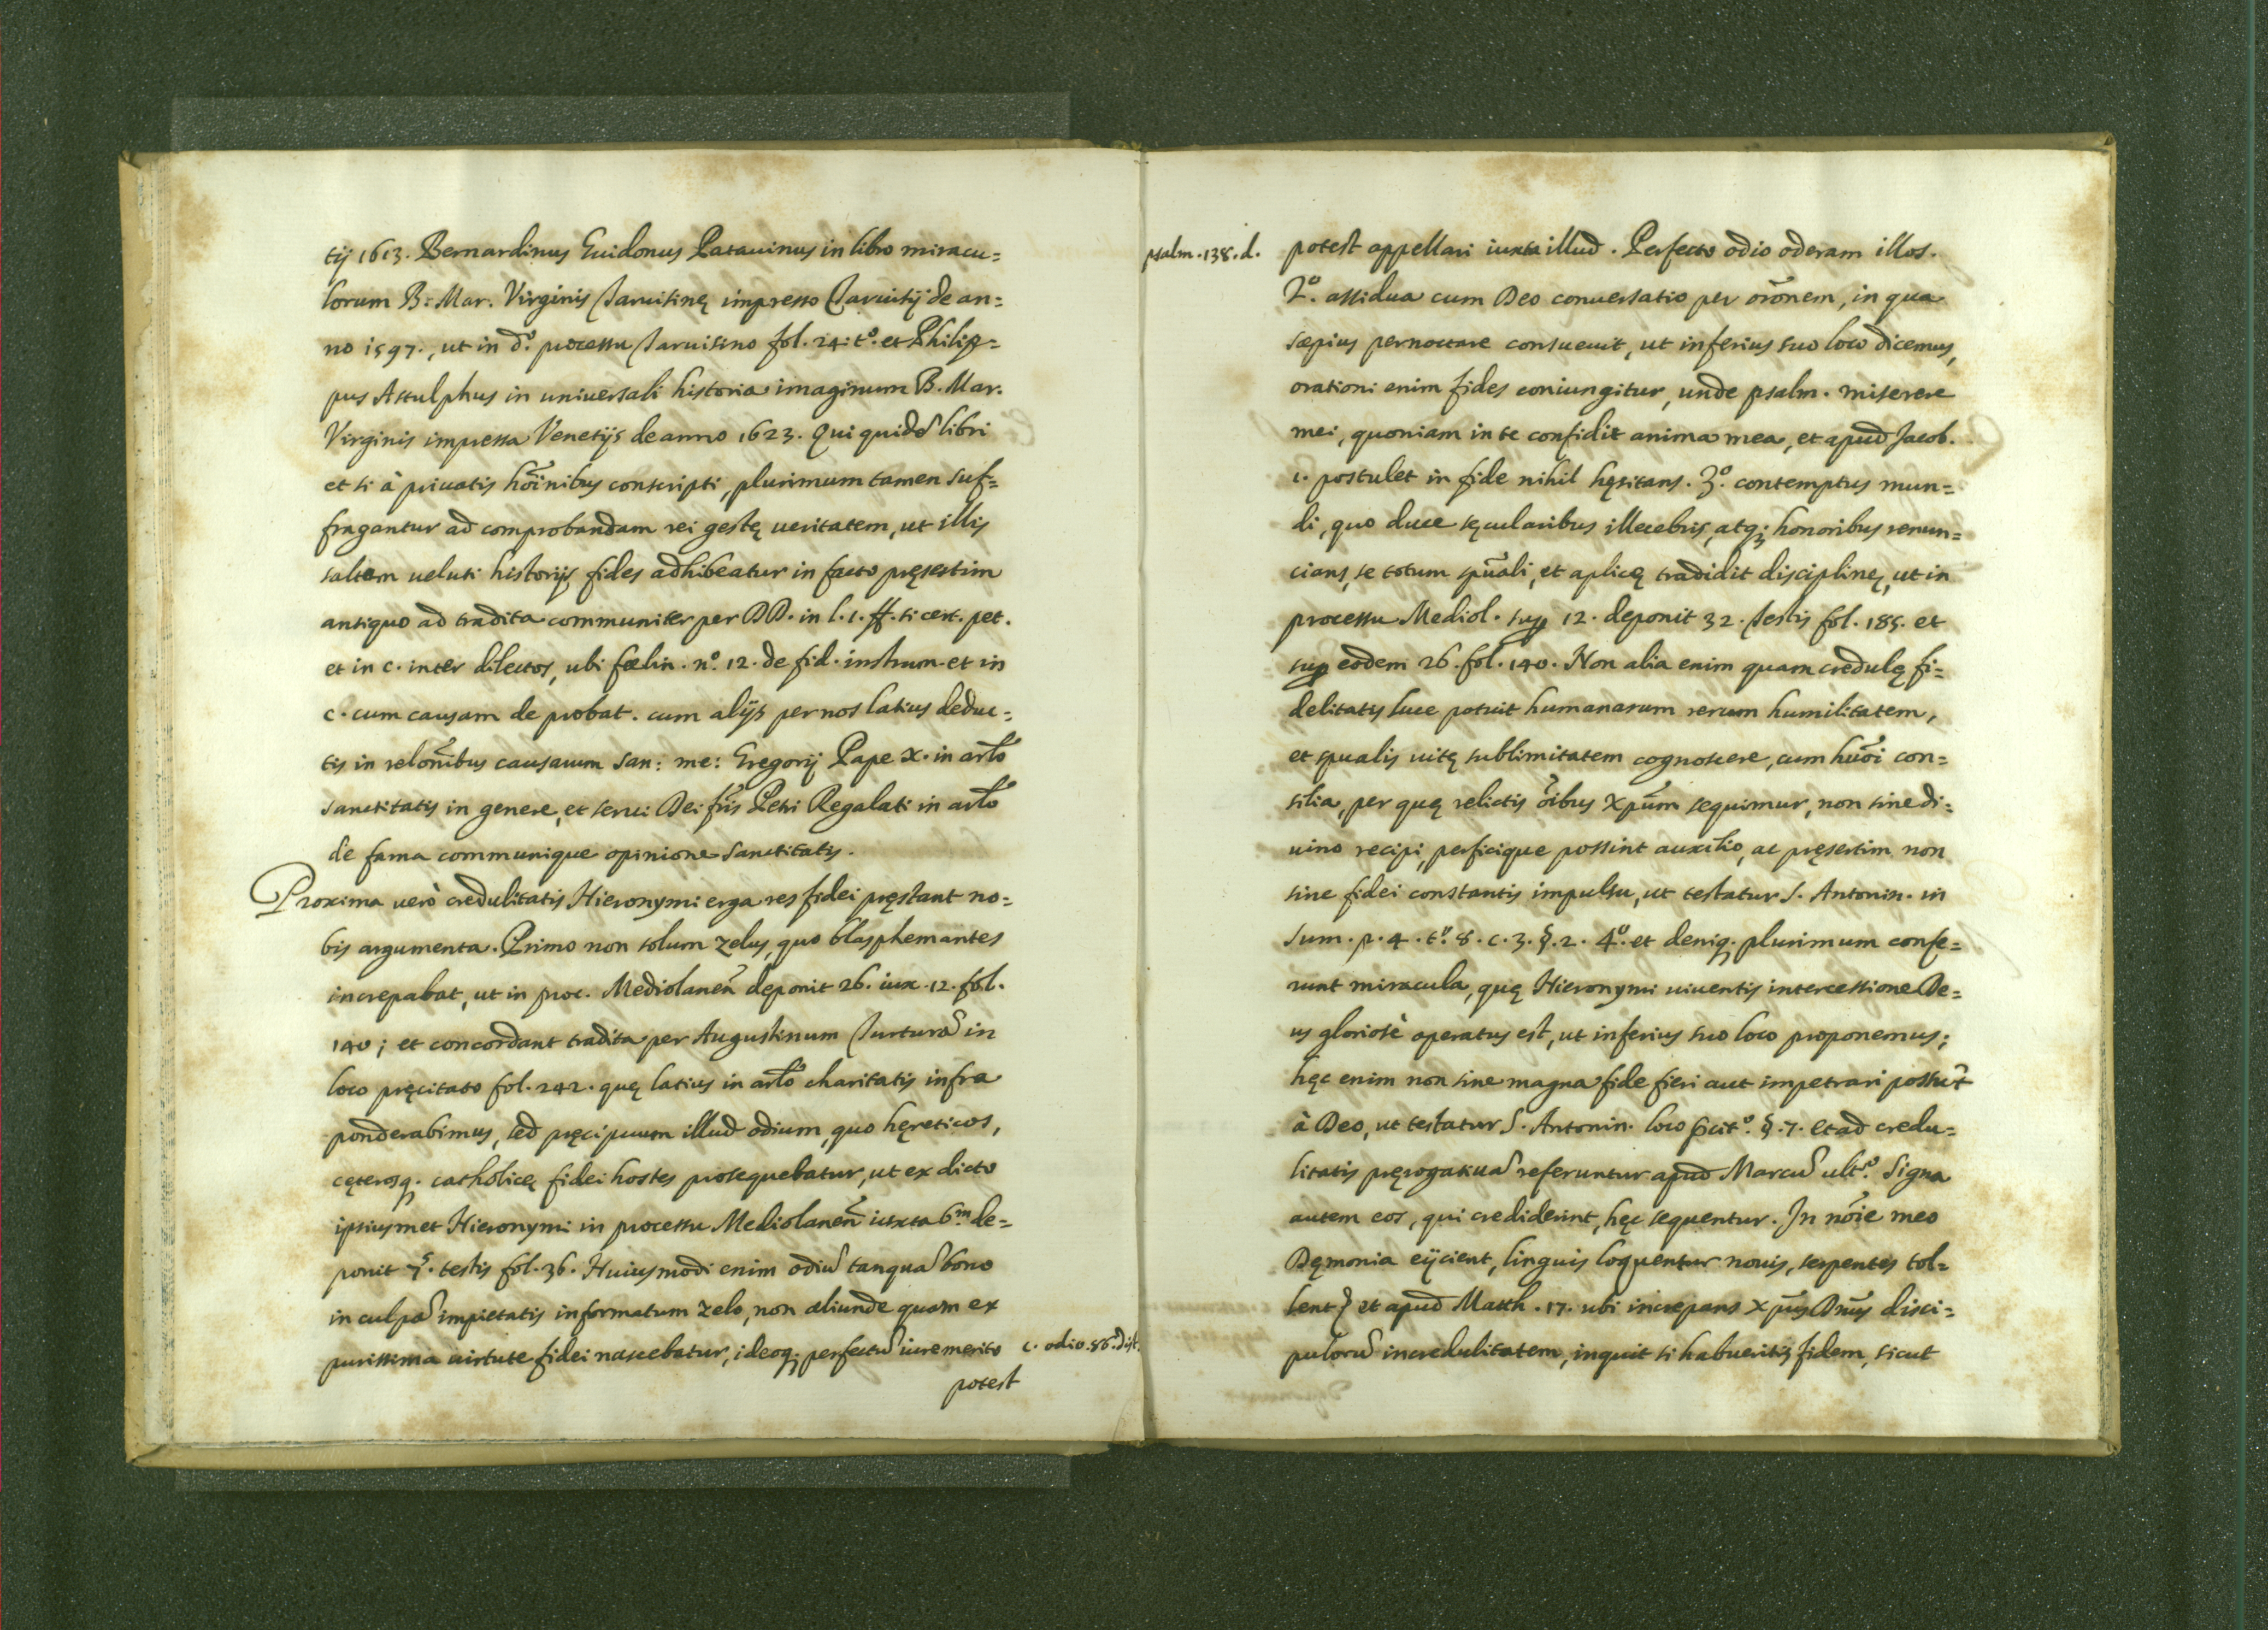 tij 1613. Bernardinus Guidonus Patauinus in libro miracu=
lorum B. Mar. Virginis Taruisinę impresso Taruisij de an=
no 1597., ut in d.º processu Taruisino fol. 24. t.º et Philip=
pus Astulphus in uniuersali historia imaginum B. Mar.
Virginis impressa Venetijs de anno 1623. Qui quidē libri
et si à priuatis hōinibus conscripti, plurimum tamen suf=
fragantur ad comprobandam rei gestę ueritatem, ut illis
saltem ueluti historijs fides adhibeatur in facto pręsertim
antiquo ad tradita communiter per DD. in l. 1. ff. si cert. pet.
et in c. inter dilectos, ubi fælin. nº. 12. de fid. instrum. et in
c. cum causam de probat. cum alijs per nos latius deduc=
tis in relōnibus causarum san: me: Gregorij Papæ X. in arlō
sanctitatis in genere, et serui Dei frīs Petri Regalati in arlō
de fama communique opinione sanctitatis.
Proxima uerò credulitatis Hieronymi erga res fidei pręstant no=
bis argumenta. Primo non solum zelus, quo blasphemantes
increpabat, ut in proc. Mediolanen̄ dęponit 26. iux. 12. fol.
140; et concordant tradita per Augustinum Turturā in
loco pręcitato fol. 242. quę latius in arlō charitatis infra
ponderabimus, sed pręcipuum illud odium, quo hęreticos,
cęterosq. catholicę fidei hostes prosequebatur, ut ex dicto
ipsiusmet Hieronymi in processu Mediolanen̄ iuxta 6.m de=
ponit 7.s testis fol. 36. Huiusmodi enim odiū tanquā bono
in culpā impietatis informatum zelo, non aliunde quam ex
purissima uirtute fidei nascebatur, ideoq; perfectū iure merito
c. odio. 86. dist.
potest
psalm. 138. d.
potest appellari iuxta illud. Perfecto odio oderam illos.
2º. assidua cum Deo conuersatio per orōnem, in qua
sæpius pernoctare consueuit, ut inferius suo loco dicemus,
orationi enim fides coniungitur, unde psalm. miserere
mei, quoniam in te confidit anima mea, et apud Jacob.
1. postulet in fide nihil hęsitans. 3º. contemptus mun=
di, quo duce sęcularibus illecebris, atq; honoribus renun=
cians, se totum spūali, et aplicę tradidit disciplinę, ut in
processu Mediol. sup 12. deponit 32. testis fol. 185. et
sup eodem 26. fol. 140. Non alia enim quam credulę fi=
delitatis luce potuit humanarum rerum humilitatem,
et spualis uitę sublimitatem cognoscere, cum huōi con=
silia, per quę relictis ōibus Xpūm sequimur, non sine di=
uino recipi, perficique possint auxilio, ac pręsertim non
sine fidei constantis impulsu, ut testatur S. Antonin. in
Sum. p. 4. tº. 8. c. 3. §. 2. 4º. et deniq. plurimum confe=
runt miracula, quę Hieronymi uiuentis intercessione De=
us gloriosè operatus est, ut inferius suo loco proponemus;
hęc enim non sine magna fide fieri aut impetrari possūt
à Deo, ut testatur S. Antonin. loco p̄citº. §. 7. et ad credu=
litatis pręrogatiuā referuntur apud Marcū ult.º Signa
autem eos, qui crediderint, hęc sequentur. In nōie meo
Dęmonia eijcient, linguis loquentur nouis, serpentes tol=
lent} et apud Matth. 17. ubi increpans Xpūs Dnūs disci=
pulorū incredulitatem, inquit si habueritis fidem, sicut